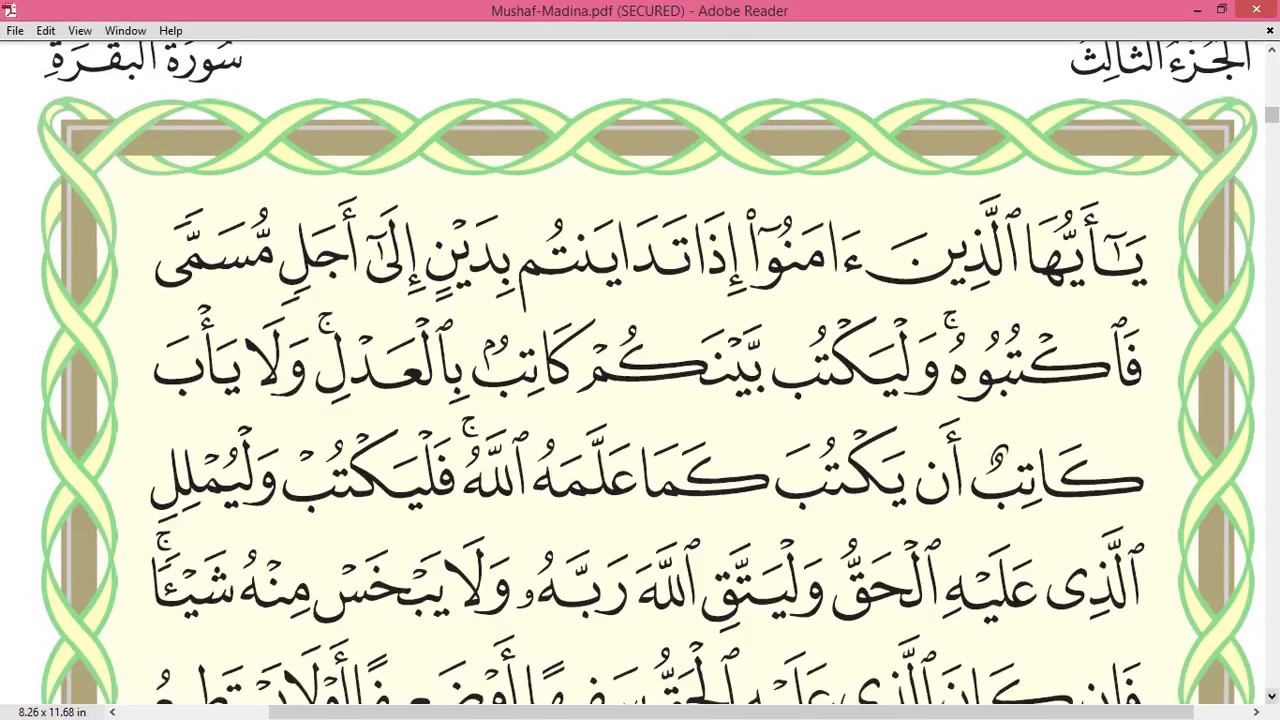 Mushaf-Madina.pdf (SECURED) - Adobe Reader
File Edit View Window Help
الجُزْءُ الثَّالِثُ سُورَةُ البَقَرَةِ
يَـٰٓأَيُّهَا ٱلَّذِينَ ءَامَنُوٓا۟ إِذَا تَدَايَنتُم بِدَيْنٍ إِلَىٰٓ أَجَلٍ مُّسَمًّى
فَٱكْتُبُوهُ ۚ وَلْيَكْتُب بَّيْنَكُمْ كَاتِبٌۢ بِٱلْعَدْلِ ۚ وَلَا يَأْبَ
كَاتِبٌ أَن يَكْتُبَ كَمَا عَلَّمَهُ ٱللَّهُ ۚ فَلْيَكْتُبْ وَلْيُمْلِلِ
ٱلَّذِى عَلَيْهِ ٱلْحَقُّ وَلْيَتَّقِ ٱللَّهَ رَبَّهُۥ وَلَا يَبْخَسْ مِنْهُ شَيْـًٔا ۚ
فَإِن كَانَ ٱلَّذِى عَلَيْهِ ٱلْحَقُّ سَفِيهًا أَوْ ضَعِيفًا أَوْ لَا يَسْتَطِيعُ
8.26 x 11.68 in